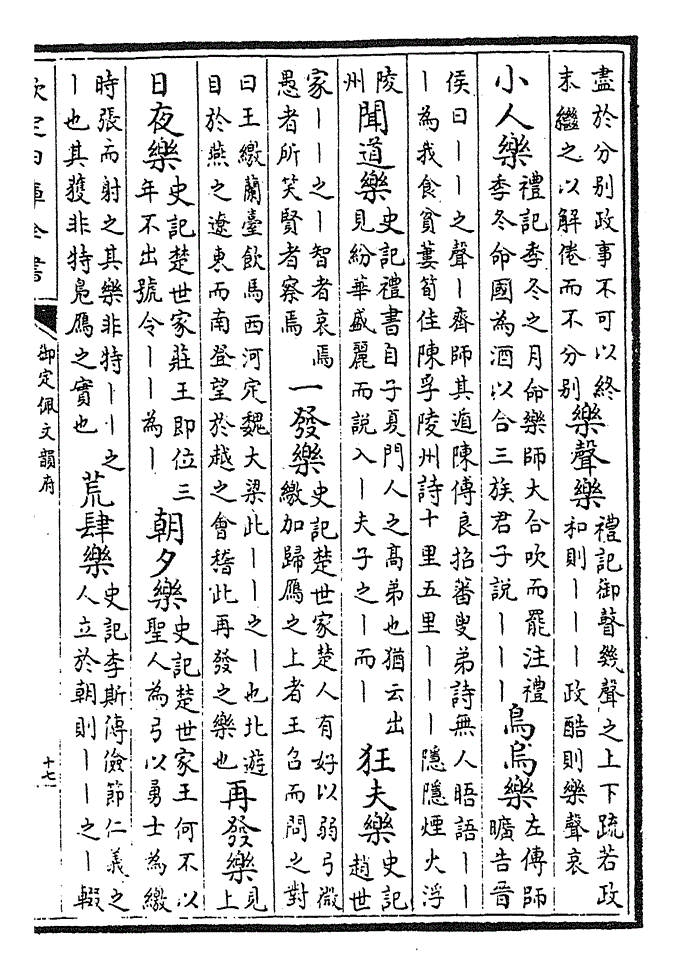 盡於分别政事不可以終末繼之以解倦而不分别樂聲樂禮記御瞽幾聲之上下䟽若政和則丨丨丨政酷則樂聲哀
小人樂禮記季冬之月命樂師大合吹而罷注禮季冬命國為酒以合三族君子說丨丨丨鳥烏樂左傳師曠告晉
侯曰丨丨之聲丨齊師其遁陳傅良招蕃叟弟詩無人晤語丨丨丨為我食貧蔞筍佳陳孚陵州詩十里五里丨丨丨隱隱煙火浮
陵州聞道樂史記禮書自子夏門人之髙弟也猶云出見紛華盛麗而說入丨夫子之丨而丨狂夫樂史記趙世
家丨丨之丨智者哀焉愚者所笑賢者察焉一發樂史記楚世家楚人有好以弱弓微繳加歸鴈之上者王召而問之對
曰王繳蘭臺飲馬西河定魏大梁此丨丨之丨也北遊目於燕之遼東而南登望於越之會稽此再發之樂也再發樂見上
日夜樂史記楚世家莊王即位三年不出號令丨丨為丨朝夕樂史記楚世家王何不以聖人為弓以勇士為繳
時張而射之其樂非特丨丨之丨也其獲非特鳬鴈之實也荒肆樂史記李斯傳儉節仁義之人立於朝則丨丨之丨輟
欽定四庫全書
御定佩文韻府
十七